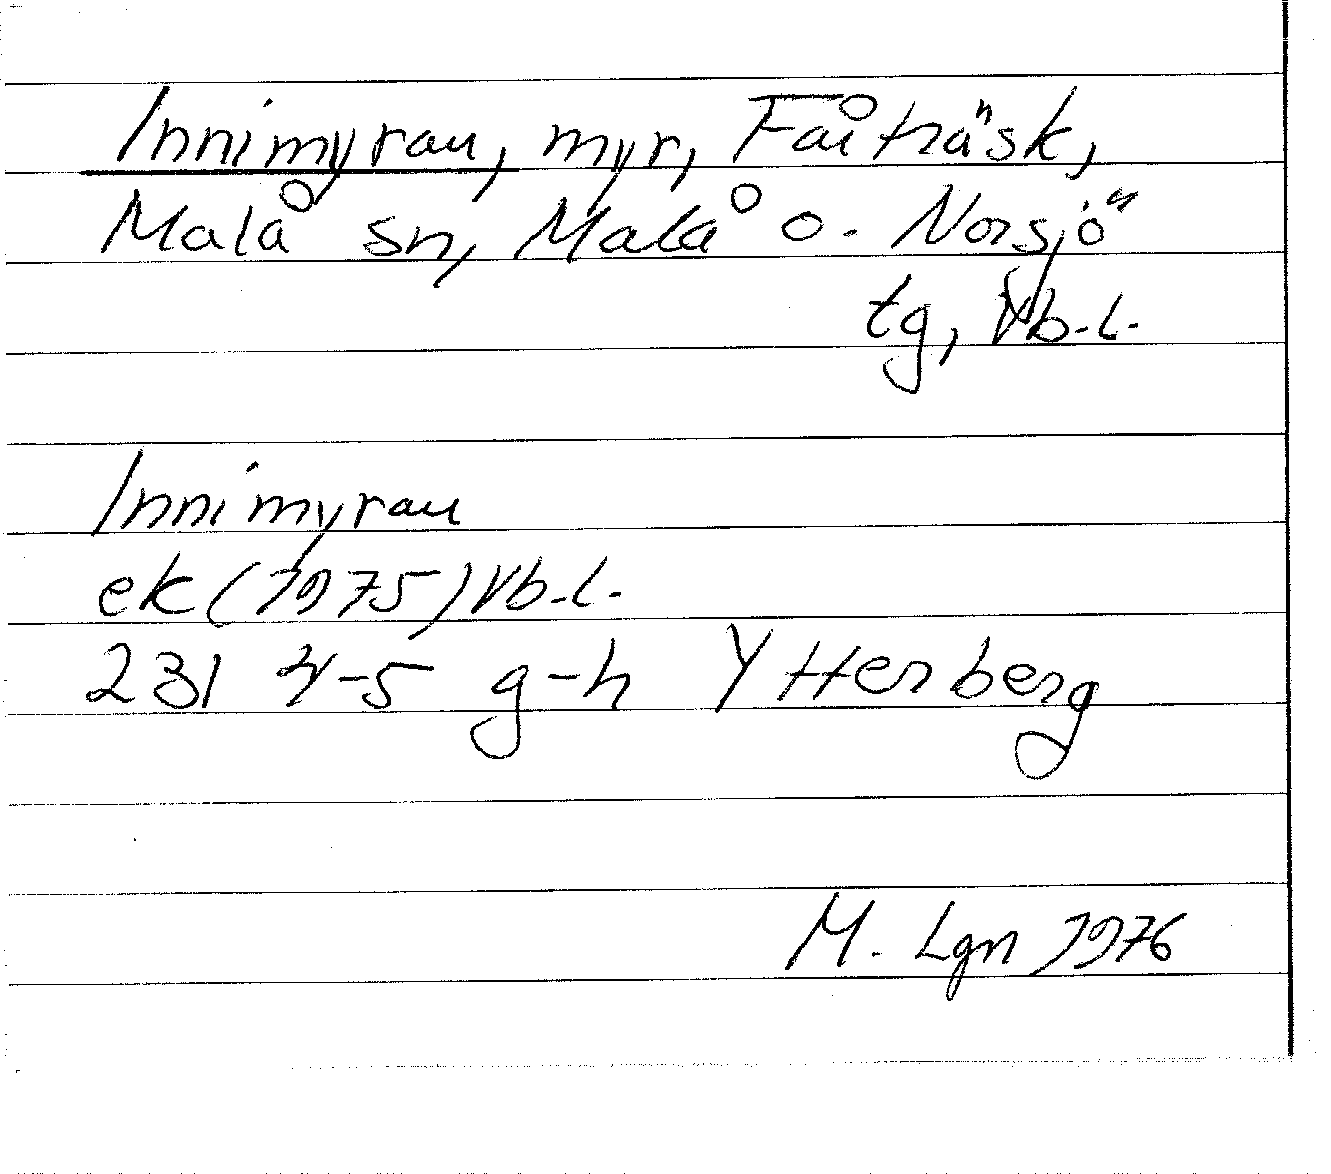 Innimyran, myr, Fårträsk,
Malå sn, Malå o. Norsjö
tg, Vb.l.
Innimyran
ek (1975) Vb.l.
23I 4-5 g-h Ytterberg
M. Lgn 1976